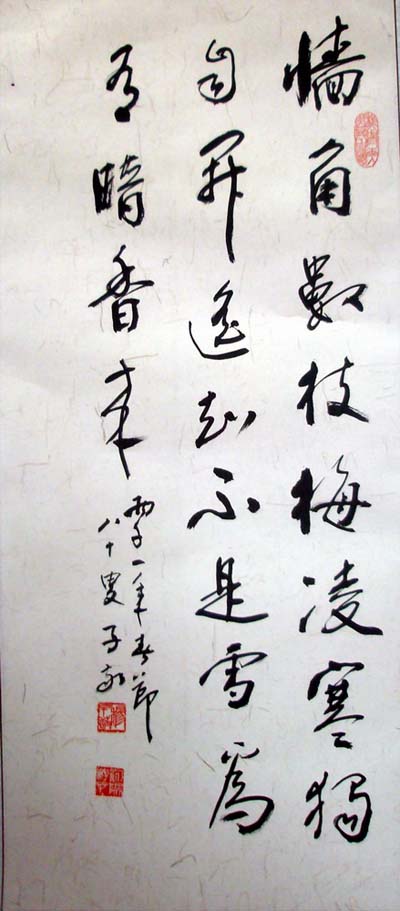 墻角數枝梅凌寒獨
自開遙知不是雪爲
有暗香來
丙子一年春節
八十叟子